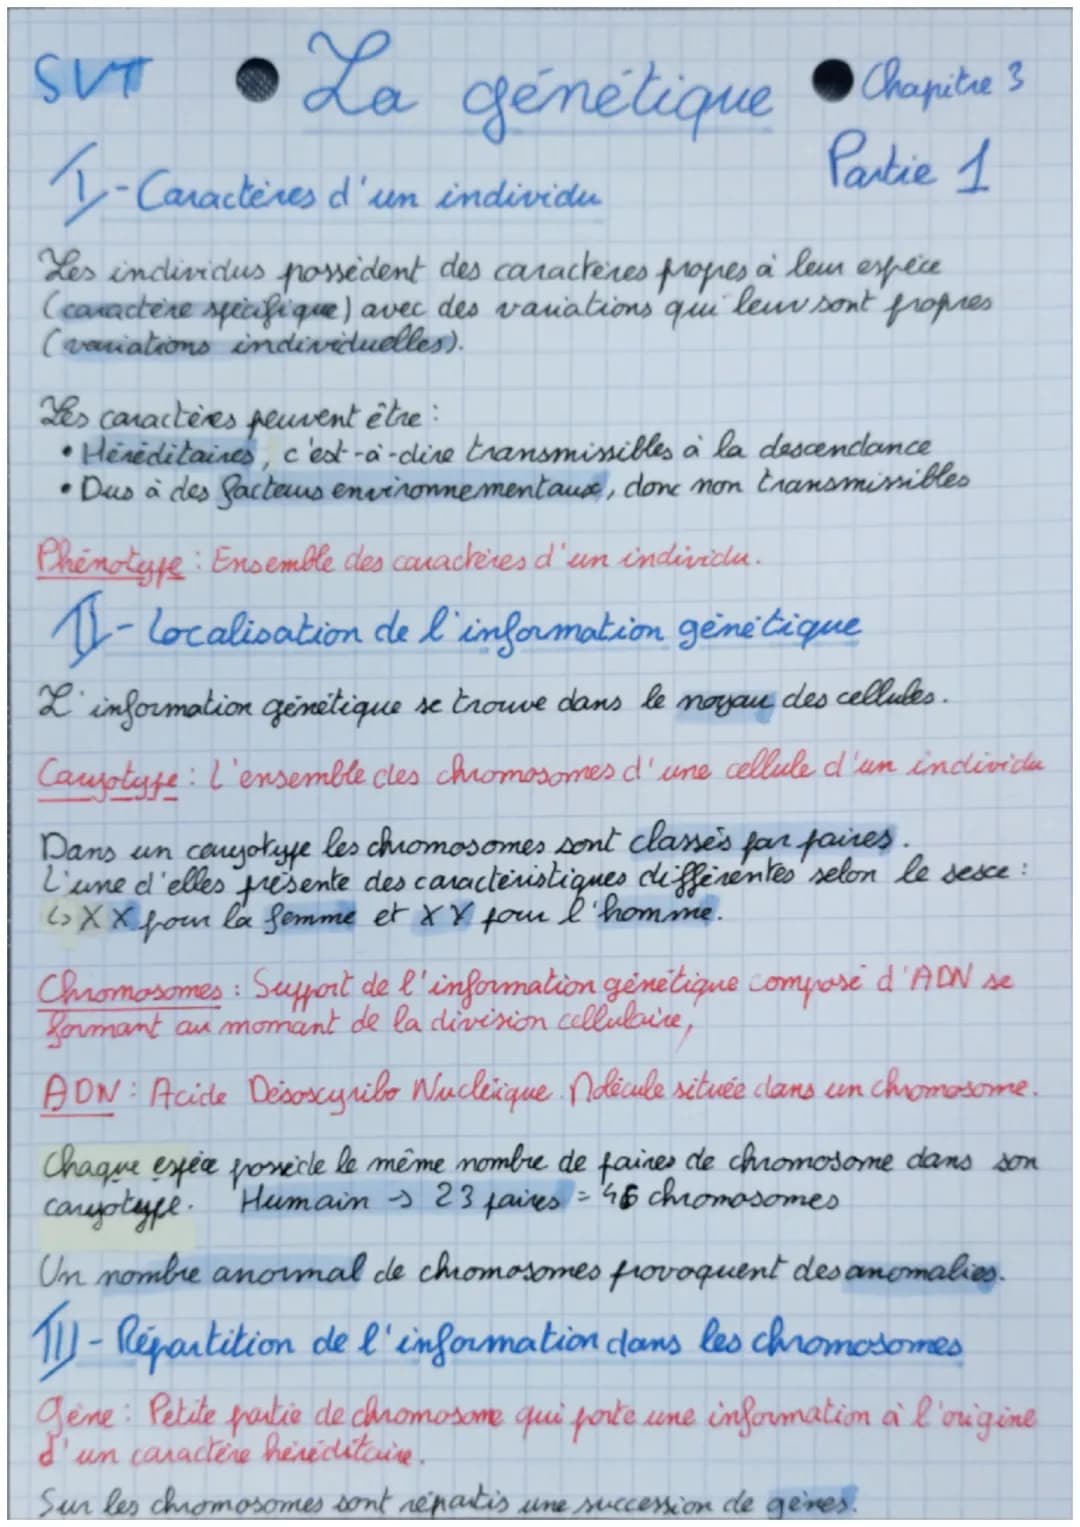 SVT La génétique Chapitre 3
Partie 1
I - Caractères d'un individu
Les individus possèdent des caractères propres à leur espèce
(caractère spécifique) avec des variations qui leur sont propres
(variations individuelles).
Les caractères peuvent être :
• Héréditaires, c'est-à-dire transmissibles à la descendance
• Dus à des facteurs environnementaux, donc non transmissibles
Phénotype : Ensemble des caractères d'un individu.
II - Localisation de l'information génétique
L'information génétique se trouve dans le noyau des cellules.
Caryotype : L'ensemble des chromosomes d'une cellule d'un individu
Dans un caryotype les chromosomes sont classés par paires.
L'une d'elles présente des caractéristiques différentes selon le sexe :
↳ XX pour la femme et XY pour l'homme.
Chromosomes : Support de l'information génétique composé d'ADN se
formant au momant de la division cellulaire,
ADN : Acide Désoxyribo Nucléique. Molécule située dans un chromosome.
Chaque espèce possède le même nombre de paires de chromosome dans son
caryotype. Humain → 23 paires = 46 chromosomes
Un nombre anormal de chromosomes provoquent des anomalies.
III - Répartition de l'information dans les chromosomes
Gène : Petite partie de chromosome qui porte une information à l'origine
d'un caractère héréditaire.
Sur les chromosomes sont répartis une succession de gènes.